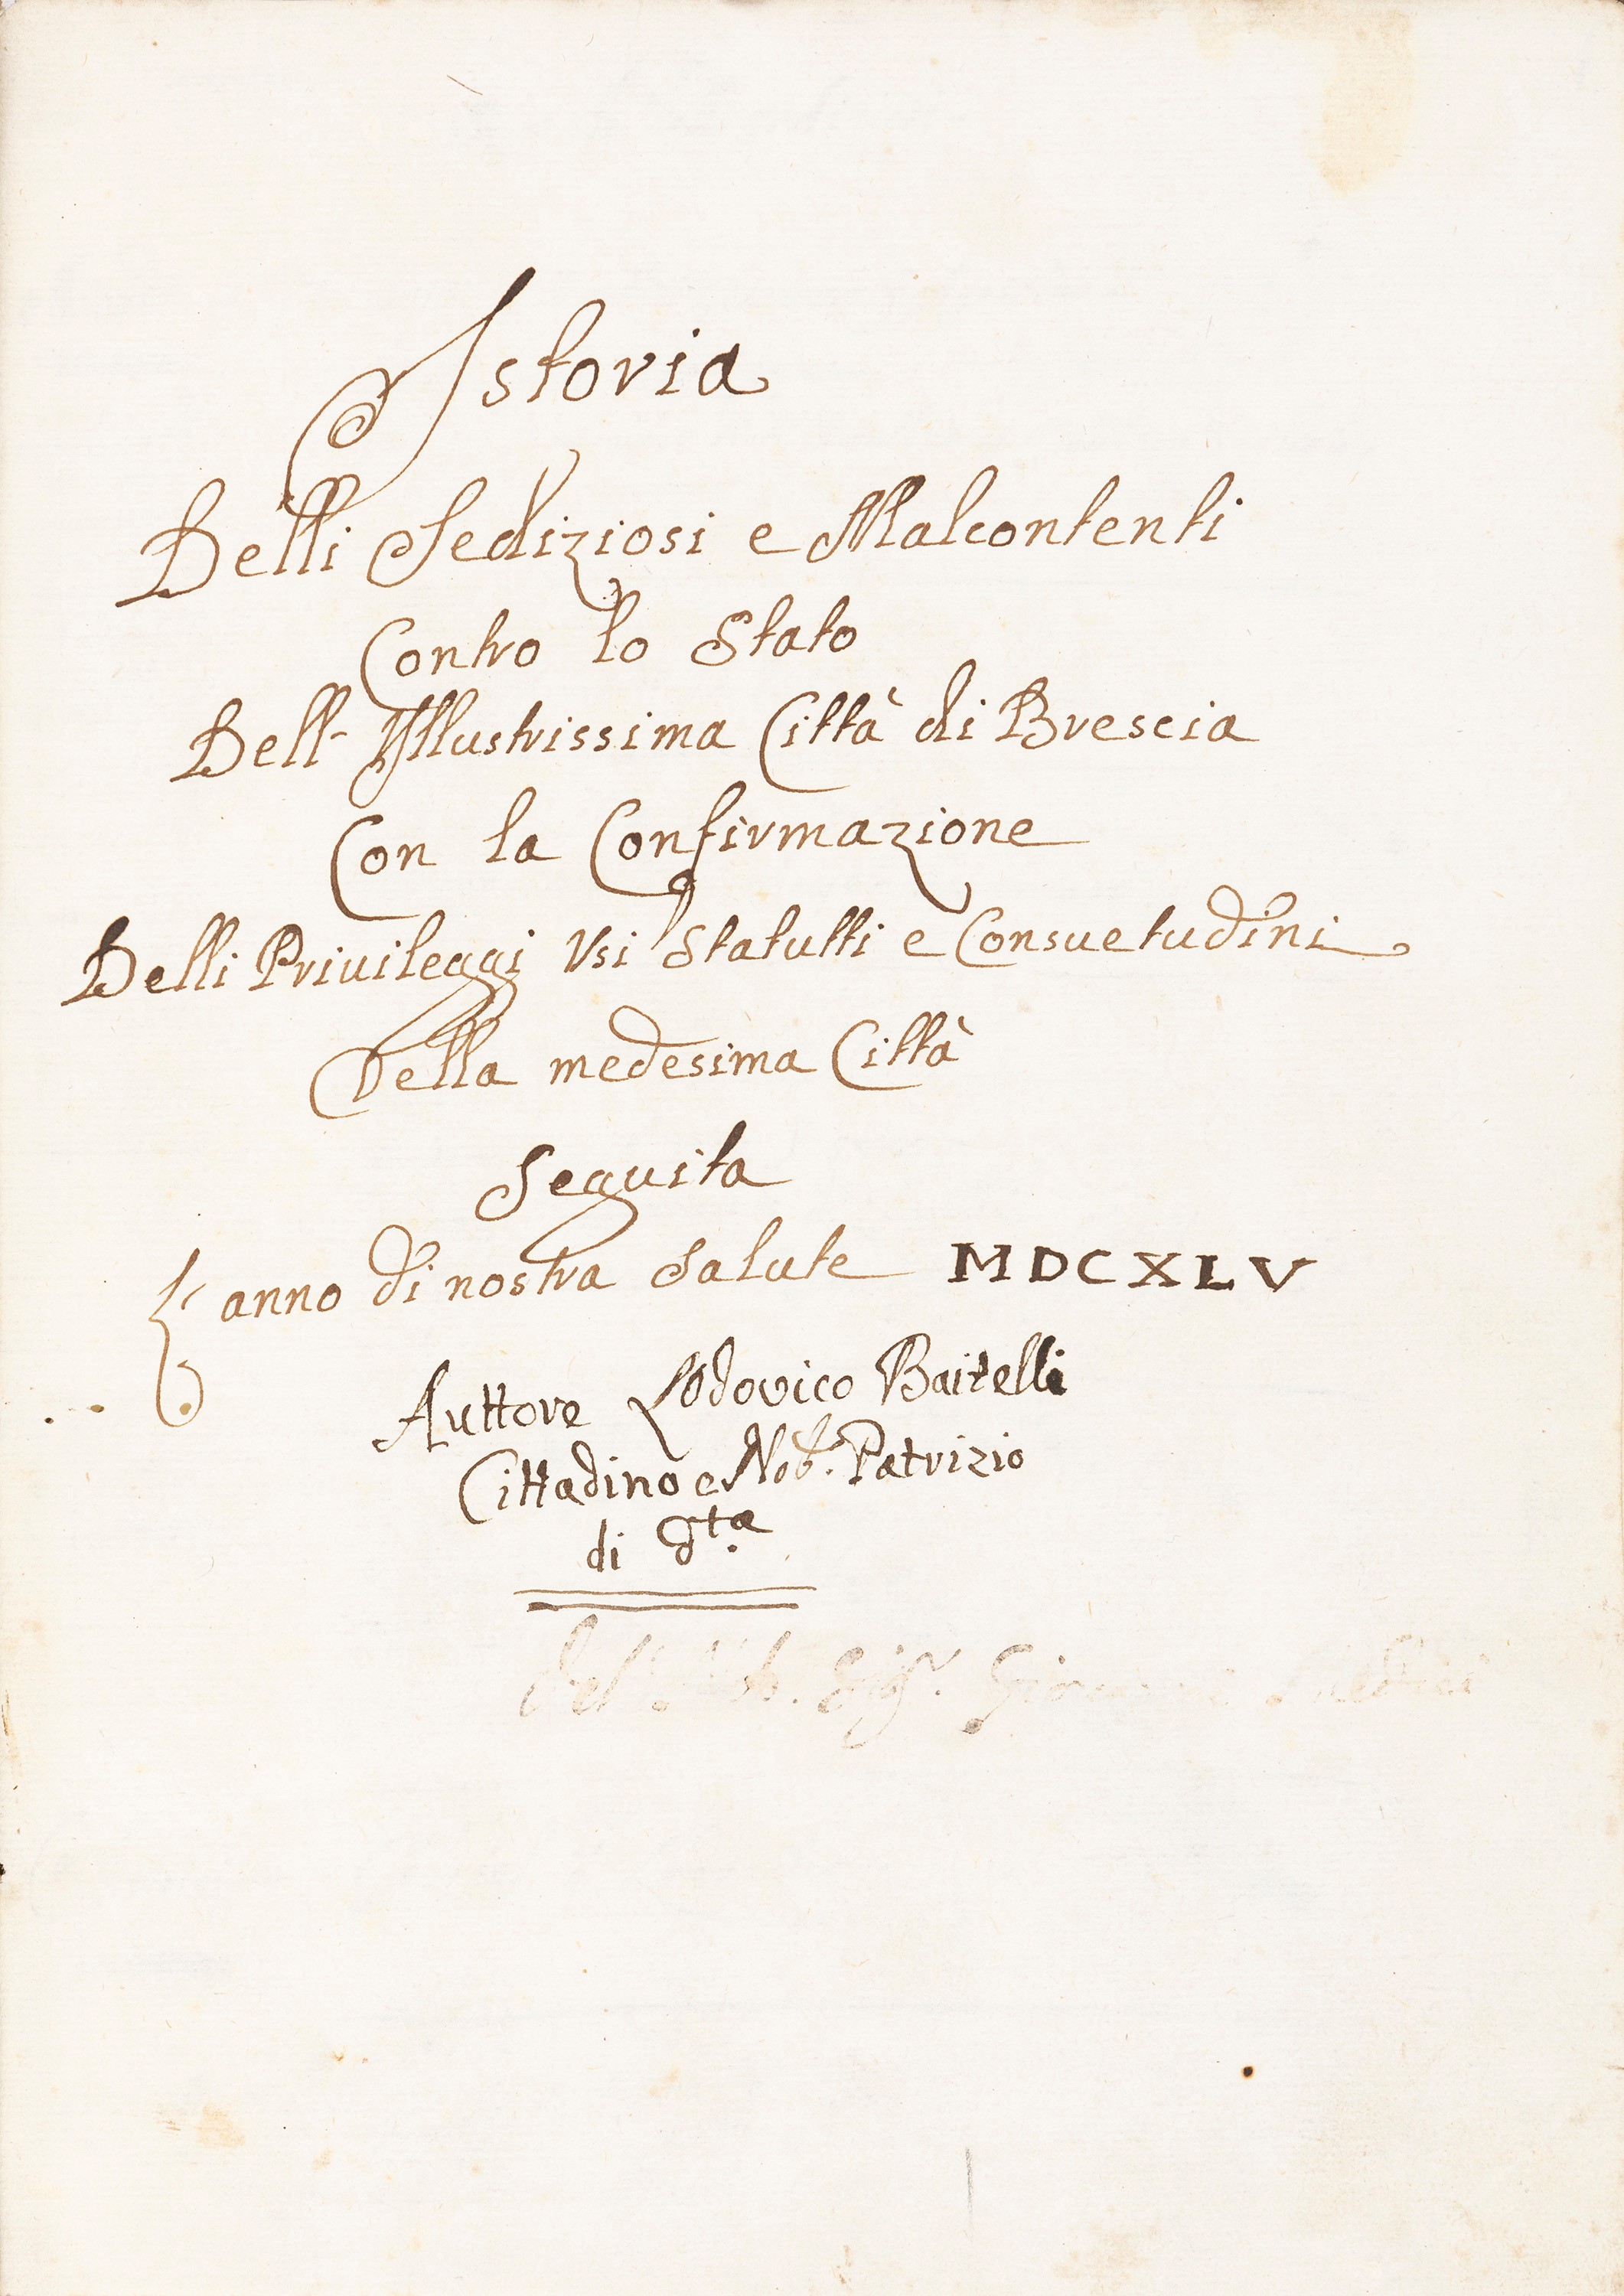 Istoria
Delli Sediziosi e Malcontenti
Contro lo Stato
Dell' Illustrissima Città di Brescia
Con la Confirmazione
Delli Priuileggi Vsi Statutti e Consuetudini
Della medesima Città
Seguita
L' anno di nostra Salute MDCXLV
Auttore Lodovico Baitelli
Cittadino e Nob. Patrizio
di d.ta
del Sig.r